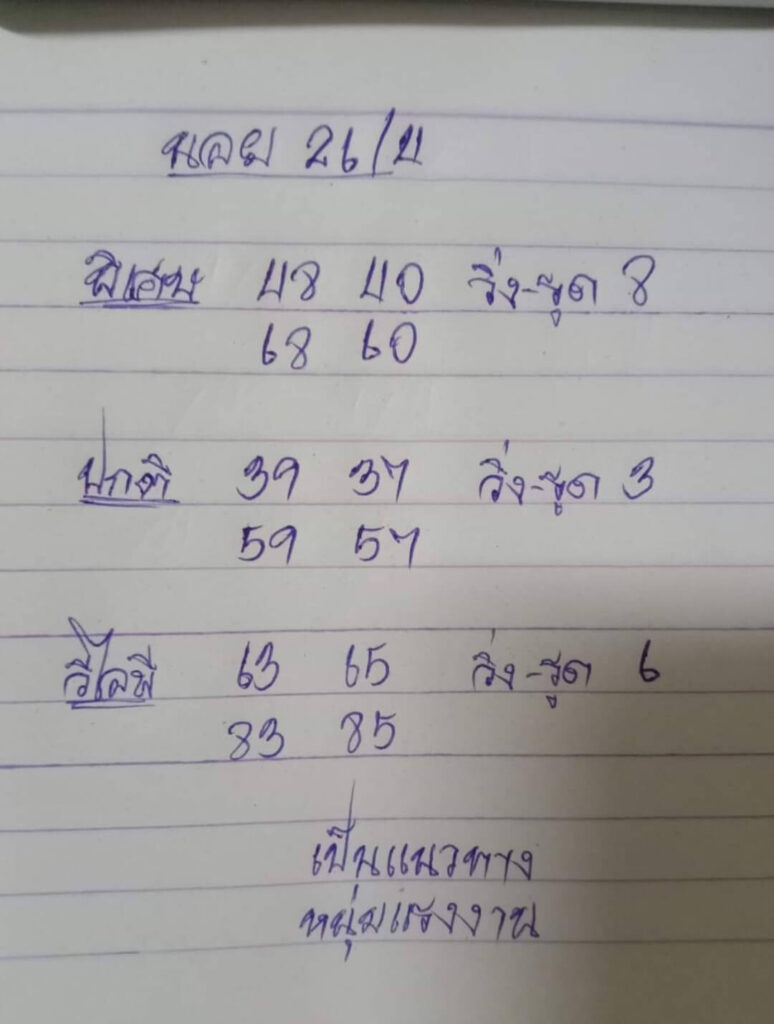 นอย 26/4
พิเศษ 48 40 วิ่ง-รูด 8
68 60
ปกติ 39 37 วิ่ง-รูด 3
59 57
วีไอพี 63 65 วิ่ง-รูด 6
83 85
เป็นแนวทาง
หนุ่มแรงงาน